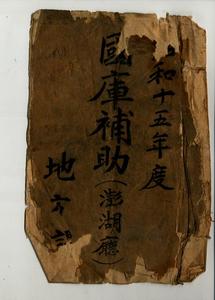 和十五年度
國庫補助(澎湖廳)
地方課